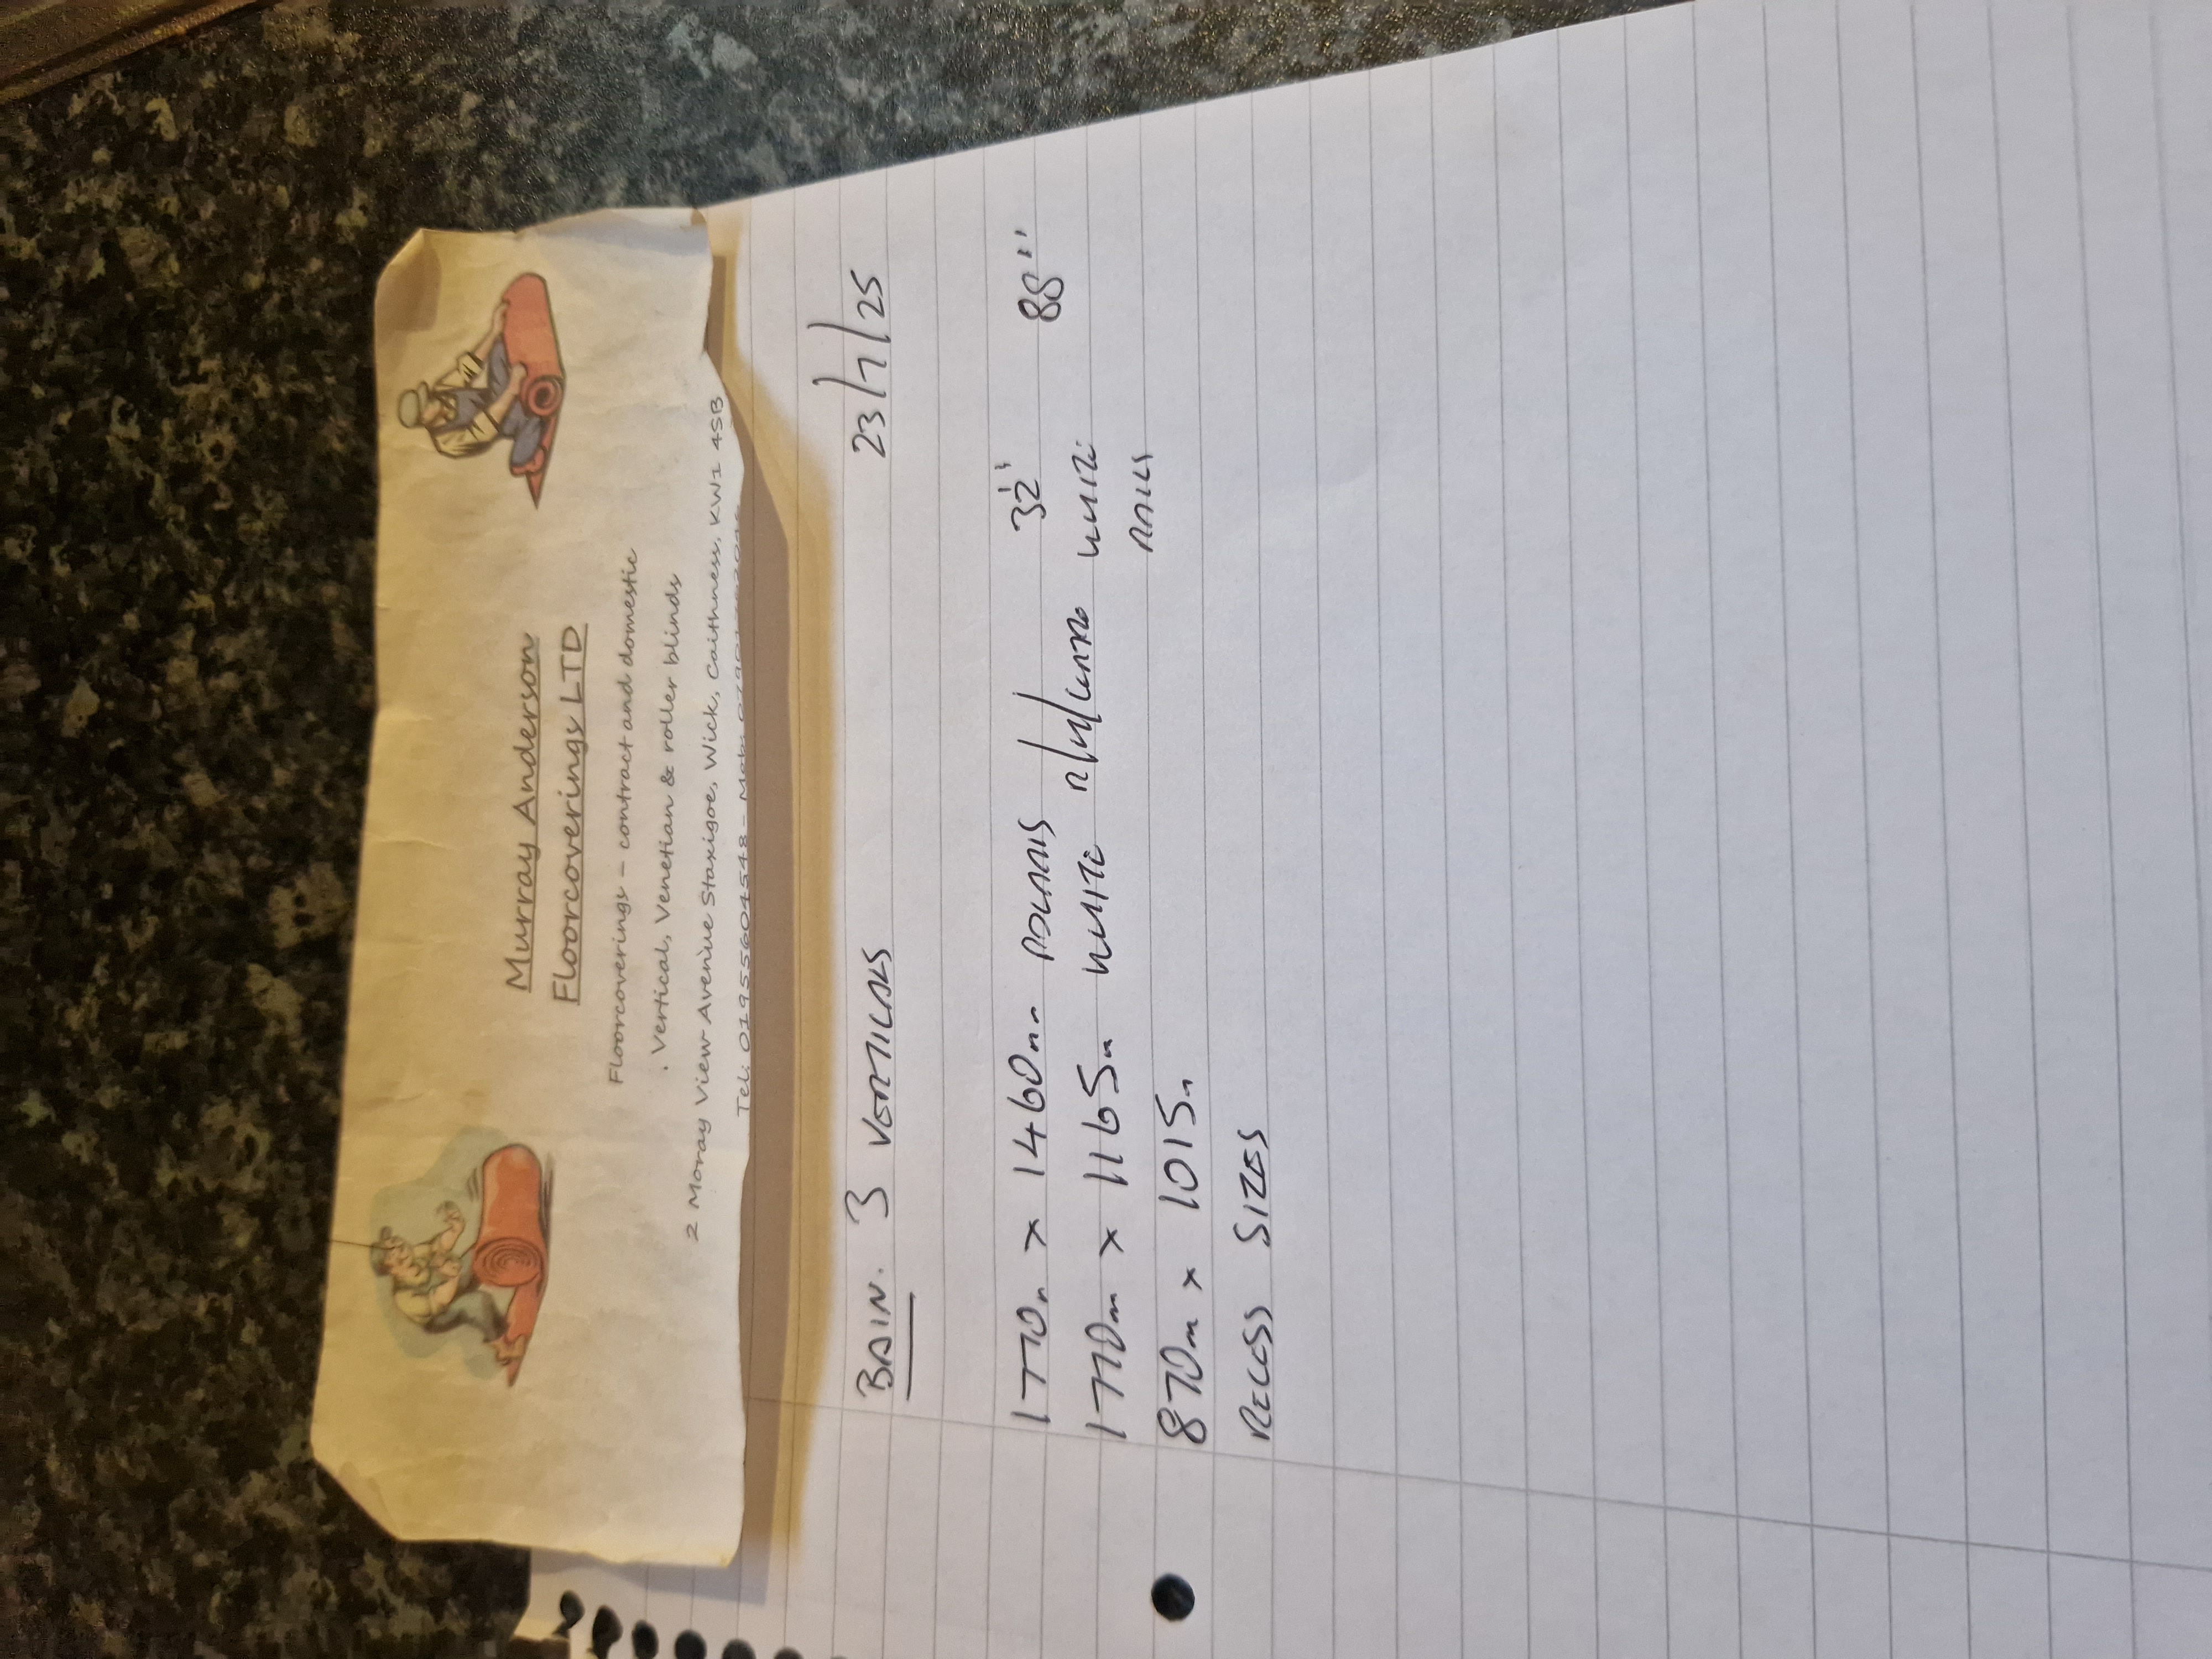 Murray Anderson
Floorcoverings LTD
Floorcoverings – contract and domestic
. Vertical, Venetian & roller blinds
2 Moray View Avenue Staxigoe, Wick, Caithness, KW1 4SB
Tel: 01955604548 – Mob:
BAIN. 3 VERTICALS 23/7/25
1770m x 1460mm POLARIS 32" 88"
1770mm x 1165m WHITE R/H/CONTRO WHITE
870m x 1015m RAILS
RECESS SIZES